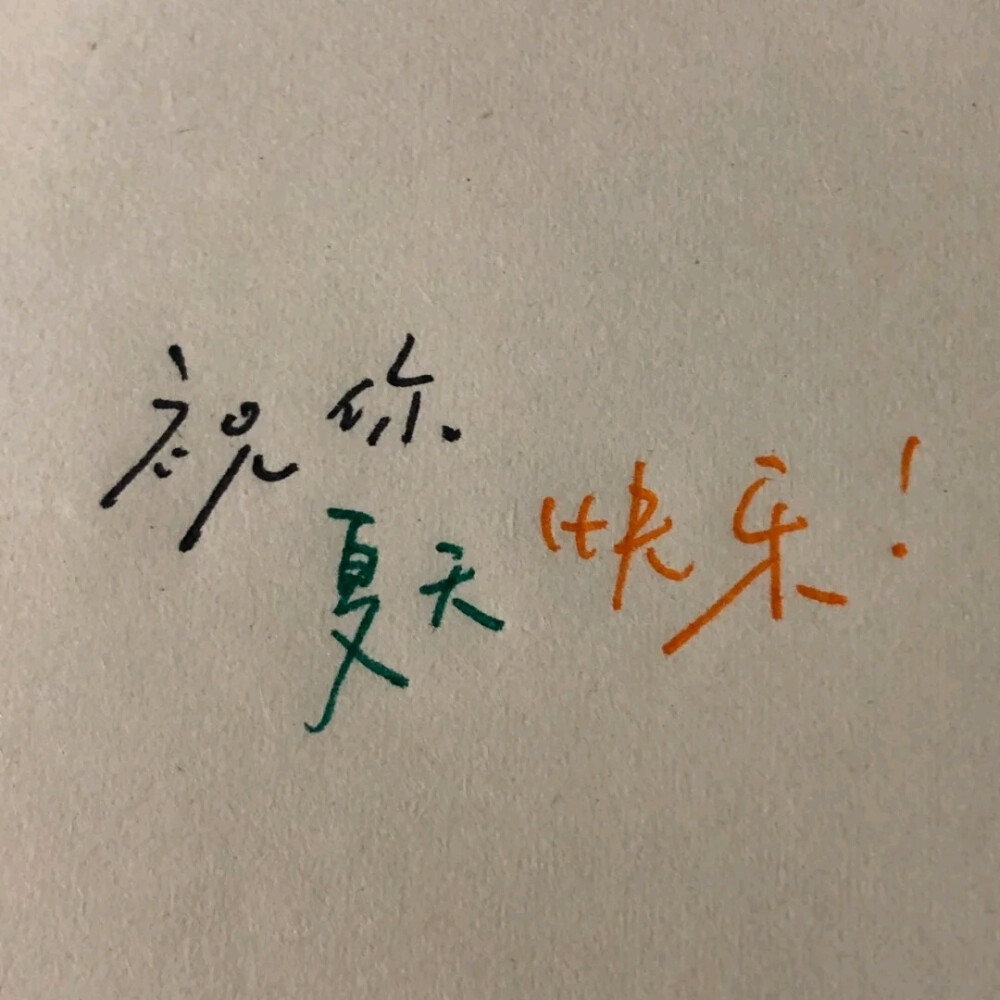 祝你
夏天快乐!